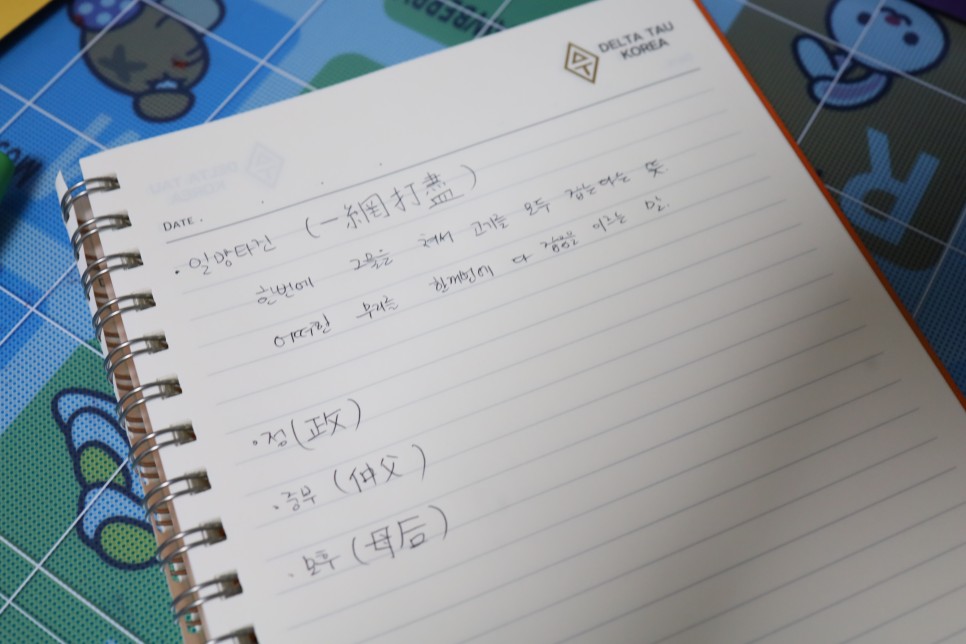 DELTA TAU
KOREA
DATE.
· 일망타진 (一網打盡)
한번에 그물을 쳐서 고기를 모두 잡는다는 뜻.
어떠한 무리를 한꺼번에 다 잡음을 이르는 말.
· 정(政)
· 중부 (仲父)
· 모후 (母后)
R